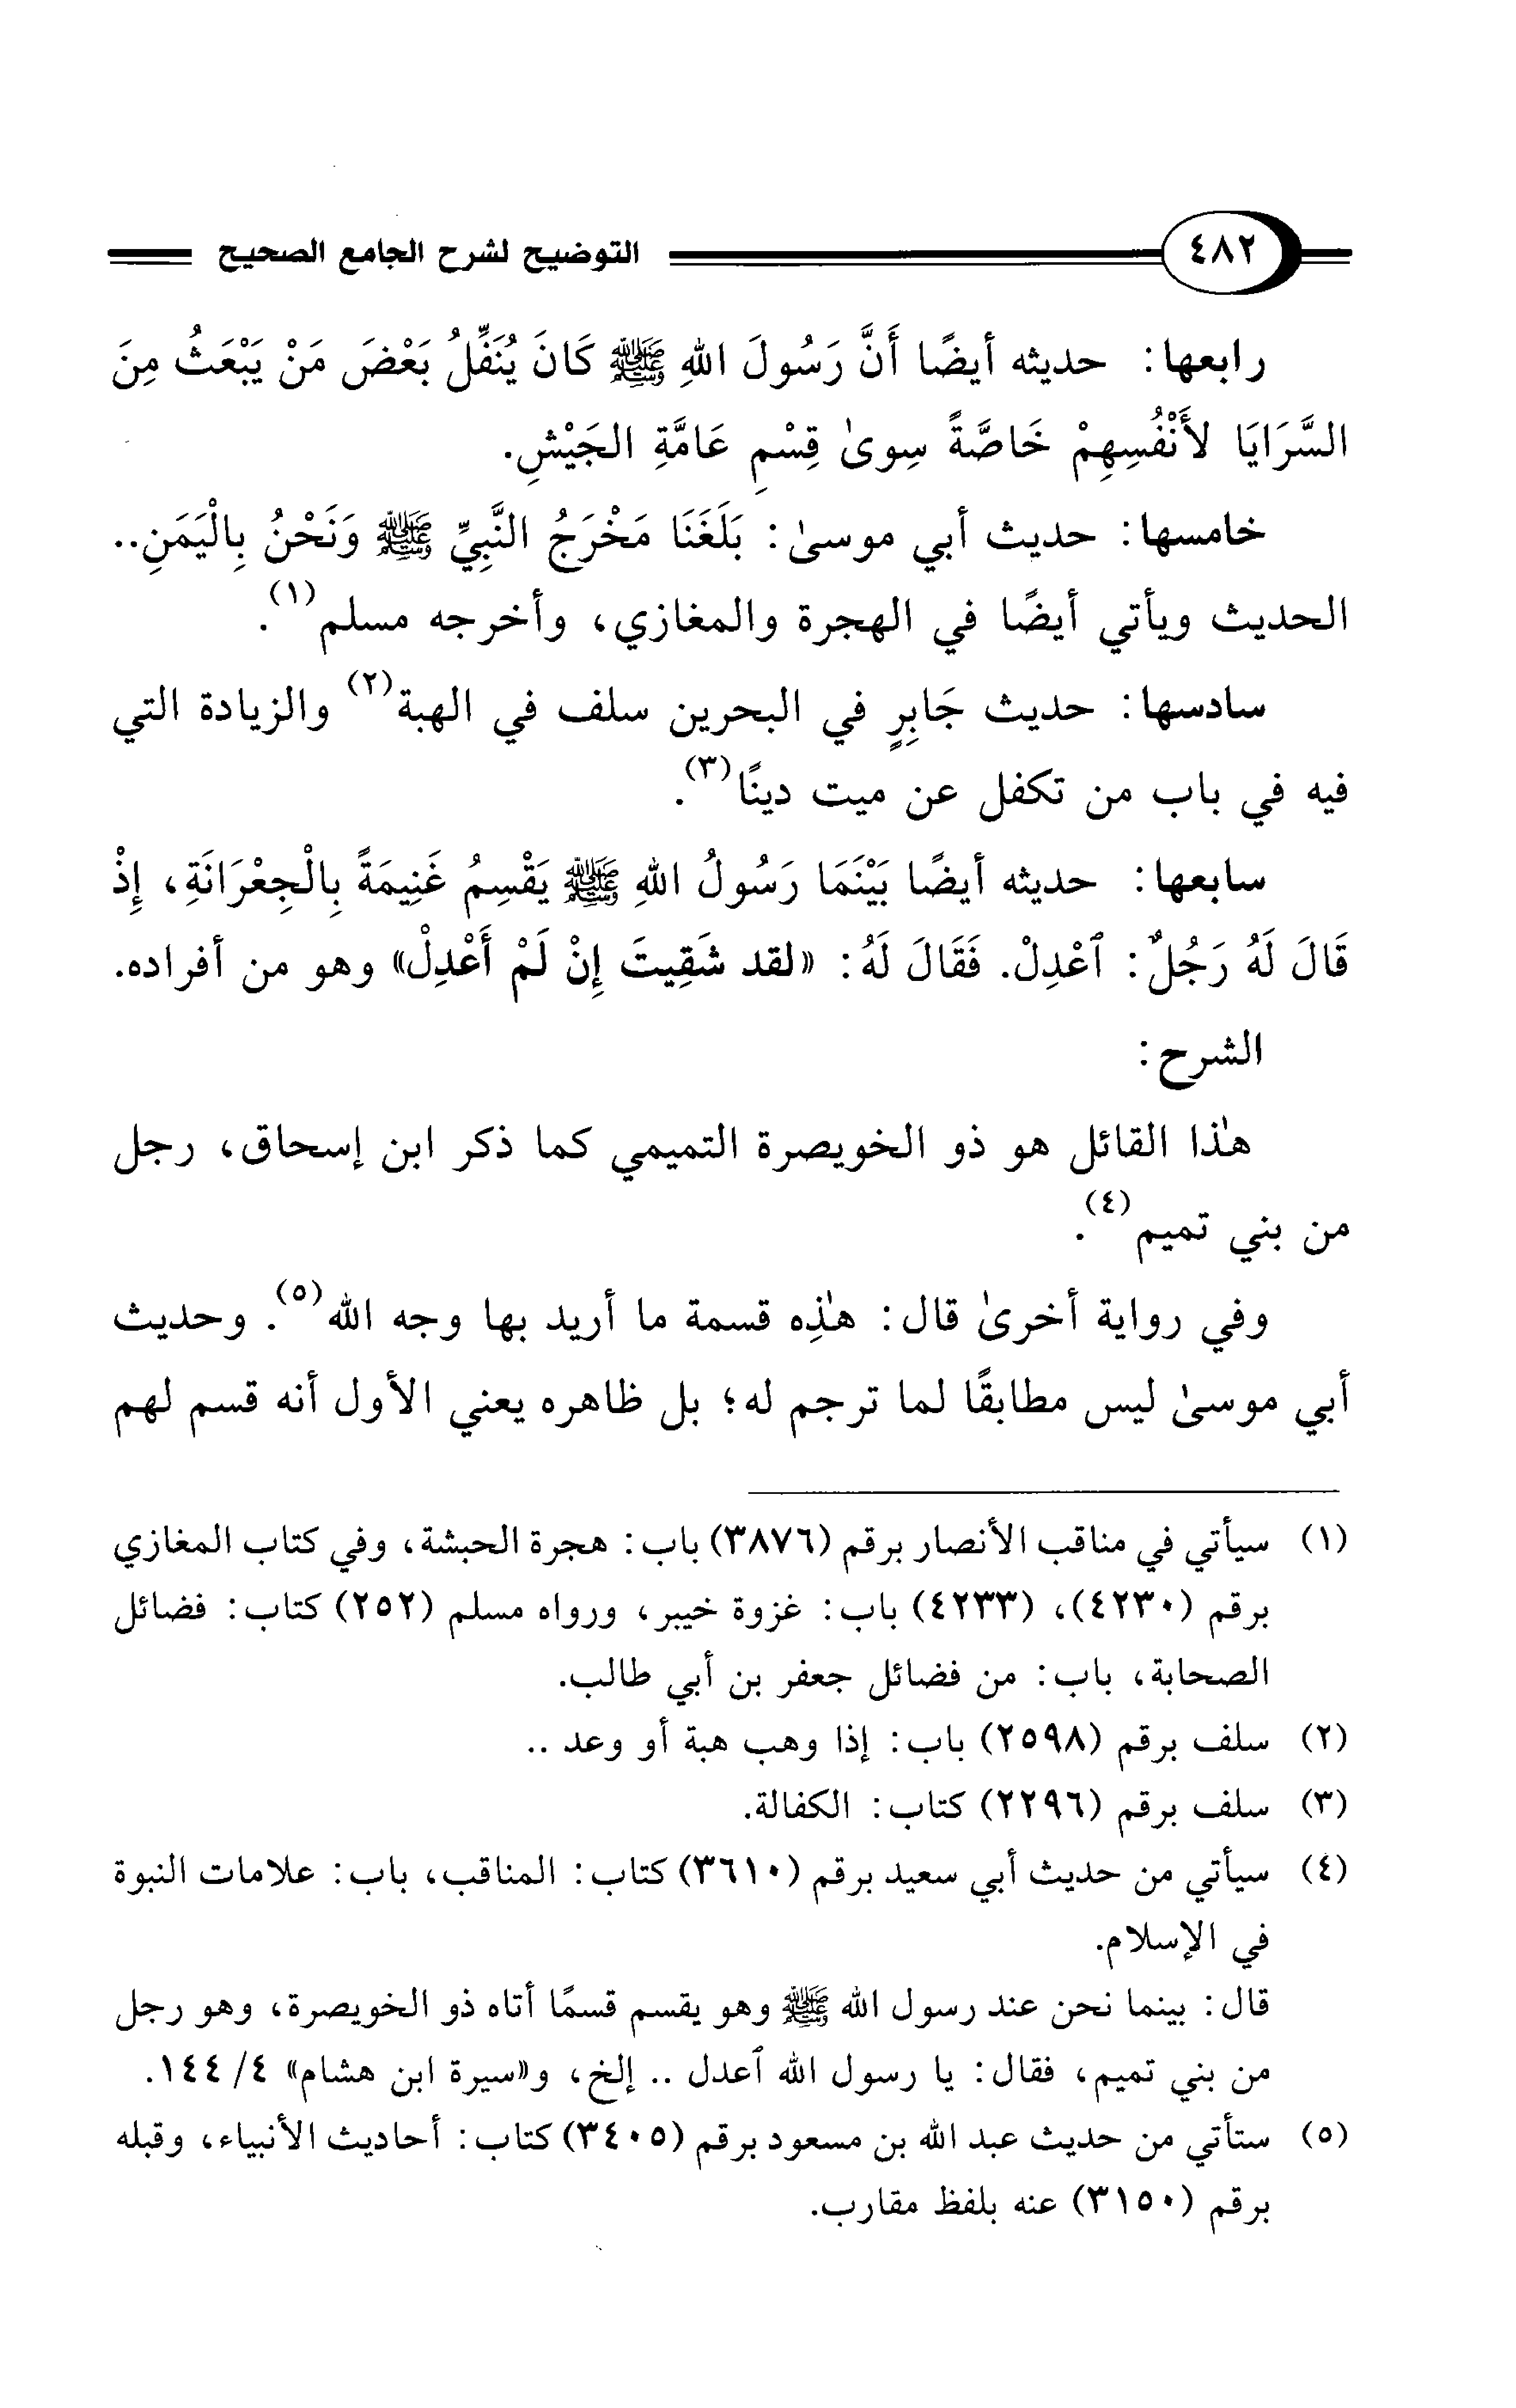 ٤٨٢ التوضيح لشرح الجامع الصحيح
رابعها: حديثه أيضًا أَنَّ رَسُولَ اللهِ ﷺ كَانَ يُنَفِّلُ بَعْضَ مَنْ يَبْعَثُ مِنَ
السَّرَايَا لأَنْفُسِهِمْ خَاصَّةً سِوىٰ قِسْمِ عَامَّةِ الجَيْشِ.
خامسها: حديث أبي موسىٰ: بَلَغَنَا مَخْرَجُ النَّبِيِّ ﷺ وَنَحْنُ بِالْيَمَنِ..
الحديث ويأتي أيضًا في الهجرة والمغازي، وأخرجه مسلم(١).
سادسها: حديث جَابِرٍ في البحرين سلف في الهبة(٢) والزيادة التي
فيه في باب من تكفل عن ميت دينًا(٣).
سابعها: حديثه أيضًا بَيْنَمَا رَسُولُ اللهِ ﷺ يَقْسِمُ غَنِيمَةً بِالْجِعْرَانَةِ، إِذْ
قَالَ لَهُ رَجُلٌ: ٱعْدِلْ. فَقَالَ لَهُ: «لقد شَقِيتَ إِنْ لَمْ أَعْدِلْ» وهو من أفراده.
الشرح:
هٰذا القائل هو ذو الخويصرة التميمي كما ذكر ابن إسحاق، رجل
من بني تميم(٤).
وفي رواية أخرىٰ قال: هٰذِه قسمة ما أريد بها وجه الله(٥). وحديث
أبي موسىٰ ليس مطابقًا لما ترجم له؛ بل ظاهره يعني الأول أنه قسم لهم
(١) سيأتي في مناقب الأنصار برقم (٣٨٧٦) باب: هجرة الحبشة، وفي كتاب المغازي
برقم (٤٢٣٠)، (٤٢٣٣) باب: غزوة خيبر، ورواه مسلم (٢٥٢) كتاب: فضائل
الصحابة، باب: من فضائل جعفر بن أبي طالب.
(٢) سلف برقم (٢٥٩٨) باب: إذا وهب هبة أو وعد ..
(٣) سلف برقم (٢٢٩٦) كتاب: الكفالة.
(٤) سيأتي من حديث أبي سعيد برقم (٣٦١٠) كتاب: المناقب، باب: علامات النبوة
في الإسلام.
قال: بينما نحن عند رسول الله ﷺ وهو يقسم قسمًا أتاه ذو الخويصرة، وهو رجل
من بني تميم، فقال: يا رسول الله ٱعدل .. إلخ، و«سيرة ابن هشام» ٤/ ١٤٤.
(٥) ستأتي من حديث عبد الله بن مسعود برقم (٣٤٠٥) كتاب: أحاديث الأنبياء، وقبله
برقم (٣١٥٠) عنه بلفظ مقارب.